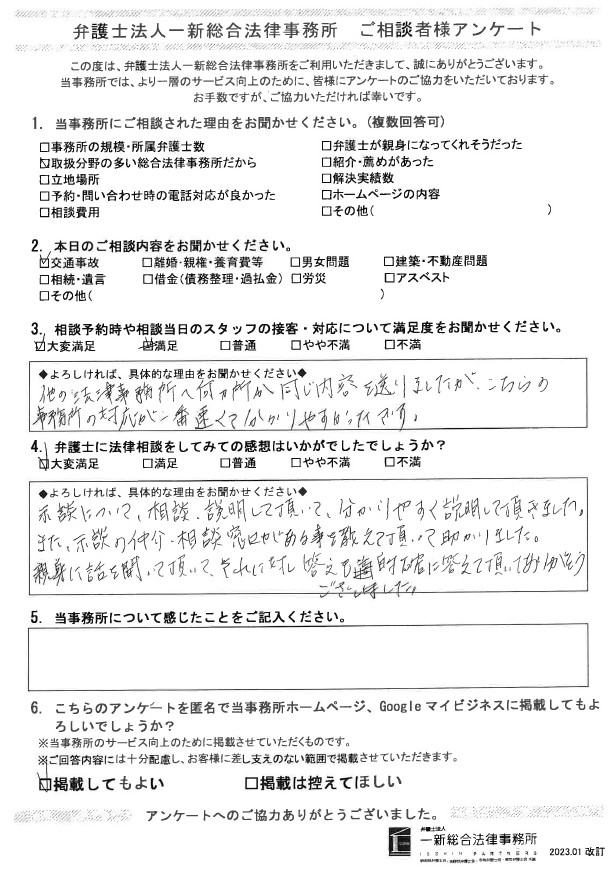 弁護士法人一新総合法律事務所 ご相談者様アンケート
この度は、弁護士法人一新総合法律事務所をご利用いただきまして、誠にありがとうございます。
当事務所では、より一層のサービス向上のために、皆様にアンケートのご協力をいただいております。
お手数ですが、ご協力いただければ幸いです。
1. 当事務所にご相談された理由をお聞かせください。(複数回答可)
□事務所の規模・所属弁護士数 □弁護士が親身になってくれそうだった
☑取扱分野の多い総合法律事務所だから □紹介・薦めがあった
□立地場所 □解決実績数
□予約・問い合わせ時の電話対応が良かった □ホームページの内容
□相談費用 □その他( )
2. 本日のご相談内容をお聞かせください。
☑交通事故 □離婚・親権・養育費等 □男女問題 □建築・不動産問題
□相続・遺言 □借金(債務整理・過払金) □労災 □アスベスト
□その他( )
3. 相談予約時や相談当日のスタッフの接客・対応について満足度をお聞かせください。
☑大変満足 ☑満足 □普通 □やや不満 □不満
◆よろしければ、具体的な理由をお聞かせください◆
他の法律事務所へ何カ所か同じ内容を送りましたが、こちらの
事務所の対応が一番速くて分かりやすかったです。
4. 弁護士に法律相談をしてみての感想はいかがでしたでしょうか?
☑大変満足 □満足 □普通 □やや不満 □不満
◆よろしければ、具体的な理由をお聞かせください◆
示談について、相談、説明して頂いて、分かりやすく説明して頂きました。
また、示談の仲介・相談窓口がある事を教えて頂いて助かりました。
親身に話を聞いて頂いて、それに対し答えも的確に答えて頂いてありがとう
ございました。
5. 当事務所について感じたことをご記入ください。
6. こちらのアンケートを匿名で当事務所ホームページ、Googleマイビジネスに掲載してもよ
ろしいでしょうか?
※当事務所のサービス向上のために掲載させていただくものです。
※ご回答内容には十分配慮し、お客様に差し支えのない範囲で掲載させていただきます。
☑掲載してもよい □掲載は控えてほしい
アンケートへのご協力ありがとうございました。
弁護士法人
一新総合法律事務所
ISSHIN PARTNERS
2023.01 改訂